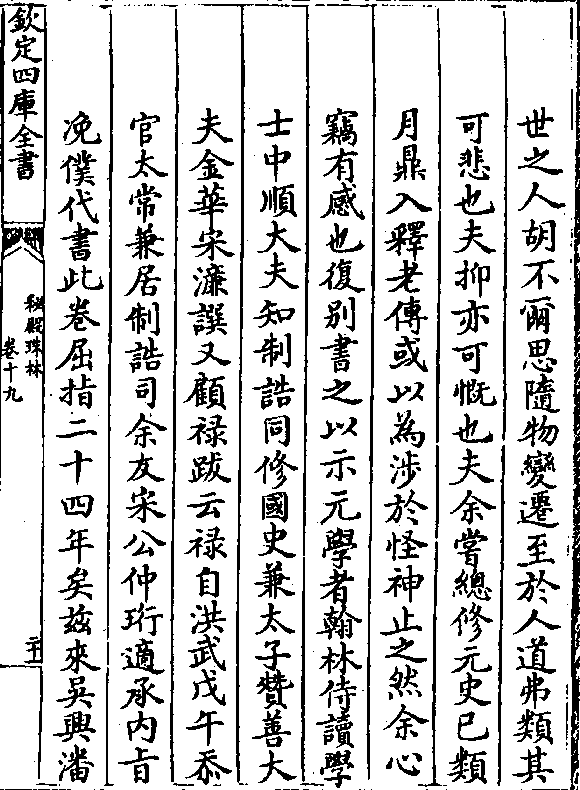 世之人胡不爾思隨物變遷至於人道弗類其
可悲也夫抑亦可慨也夫余嘗總修元史已類
月鼎入釋老傳或以為渉於怪神止之然余心
竊有感也復别書之以示元學者翰林侍讀學
士中順大夫知制誥同修國史兼太子贊善大
夫金華宋濂譔又顧禄跋云禄自洪武戊午忝
官太常兼居制誥司余友宋公仲珩適承内㫖
俛僕代書此卷屈指二十四年矣兹來吳興潘
欽定四庫全書
秘殿珠林
卷十九
二十